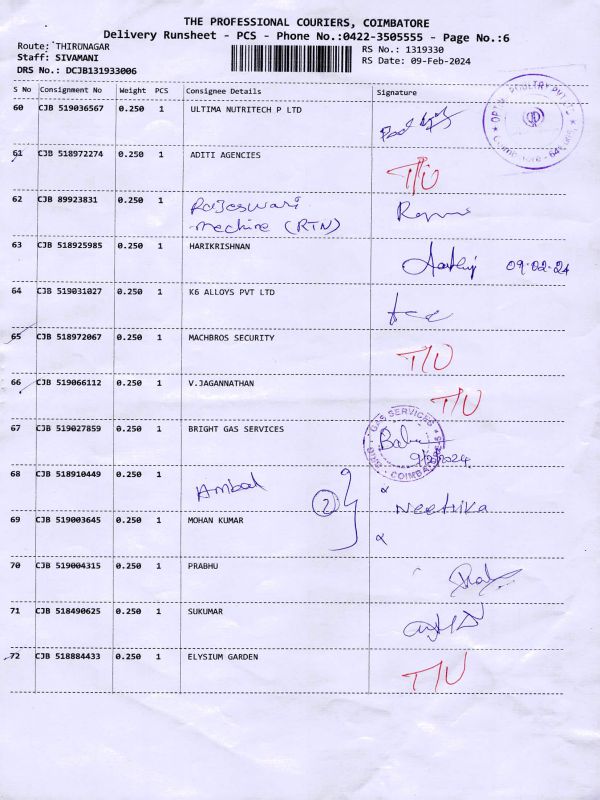 THE PROFESSIONAL COURIERS, COIMBATORE
Delivery Runsheet - PCS - Phone No.:0422-3505555 - Page No.:6
Route: THIRUNAGAR
RS No.: 1319330
Staff: SIVAMANI
RS Date: 09-Feb-2024
DRS No.: DCJB131933006
S No Consignment No Weight PCS Consignee Details Signature
60 CJB 519036567 0.250 1 ULTIMA NUTRITECH P LTD
61 CJB 518972274 0.250 1 ADITI AGENCIES T/U
62 CJB 89923831 0.250 1 Rajeswari
Mechine (RTN)
63 CJB 518925985 0.250 1 HARIKRISHNAN
09-02-24
64 CJB 519031027 0.250 1 K6 ALLOYS PVT LTD
65 CJB 518972067 0.250 1 MACHBROS SECURITY T/U
66 CJB 519066112 0.250 1 V.JAGANNATHAN T/U
67 CJB 519027859 0.250 1 BRIGHT GAS SERVICES
GAS SERVICES
COIMBATORE
68 CJB 518910449 0.250 1 Ambal
2 Neethika
69 CJB 519003645 0.250 1 MOHAN KUMAR
70 CJB 519004315 0.250 1 PRABHU
71 CJB 518490625 0.250 1 SUKUMAR
72 CJB 518884433 0.250 1 ELYSIUM GARDEN T/U